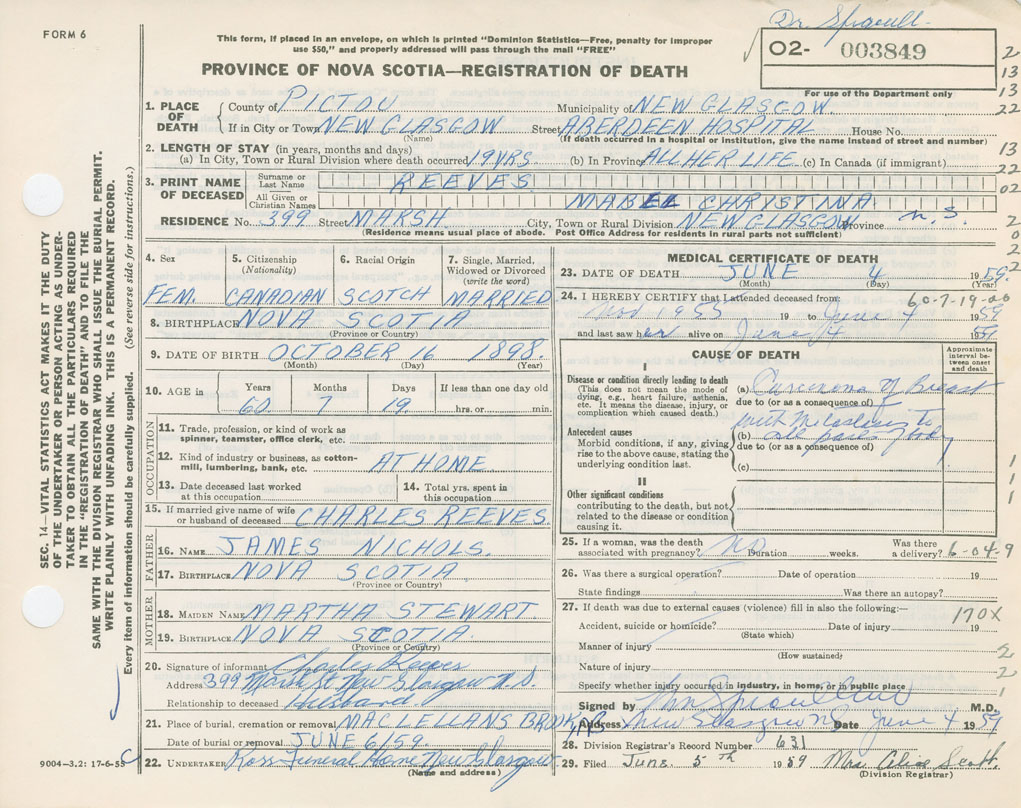 Dr. Sproull
FORM 6
This form, if placed in an envelope, on which is printed "Dominion Statistics—Free, penalty for improper
use $50," and properly addressed will pass through the mail "FREE"
O2- 003849
PROVINCE OF NOVA SCOTIA—REGISTRATION OF DEATH
For use of the Department only
1. PLACE OF DEATH
County of PICTOU Municipality of NEW GLASGOW.
If in City or Town NEW GLASGOW Street ABERDEEN HOSPITAL House No.
(Name) (If death occurred in a hospital or institution, give the name instead of street and number)
2. LENGTH OF STAY (in years, months and days)
(a) In City, Town or Rural Division where death occurred 19 YRS. (b) In Province ALL HER LIFE (c) In Canada (if immigrant)
3. PRINT NAME OF DECEASED
Surname or Last Name REEVES
All Given or Christian Names MABEL CHRISTINA
RESIDENCE No. 399 Street MARSH. City, Town or Rural Division NEW GLASGOW Province N.S.
(Residence means usual place of abode. Post Office Address for residents in rural parts not sufficient)
4. Sex FEM.
5. Citizenship (Nationality) CANADIAN
6. Racial Origin SCOTCH
7. Single, Married, Widowed or Divorced (write the word) MARRIED
8. BIRTHPLACE NOVA SCOTIA
(Province or Country)
9. DATE OF BIRTH OCTOBER 16 1898.
(Month) (Day) (Year)
10. AGE in Years 60. Months 7 Days 19. If less than one day old hrs. or min.
OCCUPATION
11. Trade, profession, or kind of work as
spinner, teamster, office clerk, etc.
12. Kind of industry or business, as cotton-
mill, lumbering, bank, etc. AT HOME.
13. Date deceased last worked
at this occupation
14. Total yrs. spent in
this occupation
15. If married give name of wife
or husband of deceased CHARLES REEVES.
FATHER
16. NAME JAMES NICHOLS.
17. BIRTHPLACE NOVA SCOTIA
(Province or Country)
MOTHER
18. MAIDEN NAME MARTHA STEWART
19. BIRTHPLACE NOVA SCOTIA.
(Province or Country)
20. Signature of informant Charles Reeves
Address 399 Marsh St New Glasgow N.S
Relationship to deceased Husband.
21. Place of burial, cremation or removal MACLELLANS BROOK, NS
Date of burial or removal JUNE 6/59.
22. UNDERTAKER Ross Funeral Home New Glasgow
(Name and address)
9004-3.2: 17-6-55 C
MEDICAL CERTIFICATE OF DEATH
23. DATE OF DEATH JUNE 4 1959.
(Month) (Day) (Year)
24. I HEREBY CERTIFY that I attended deceased from: 60-7-19-00
Nov 1955 19 to June 4 1959
and last saw her alive on June 4 1959
CAUSE OF DEATH
Approximate interval between onset and death
I
Disease or condition directly leading to death
(This does not mean the mode of
dying, e.g., heart failure, asthenia,
etc. It means the disease, injury, or
complication which caused death.)
(a) Carcinoma of Breast
due to (or as a consequence of)
with Metastasis to
(b) all parts of body
due to (or as a consequence of)
(c)
Antecedent causes
Morbid conditions, if any, giving
rise to the above cause, stating the
underlying condition last.
II
Other significant conditions
contributing to the death, but not
related to the disease or condition
causing it.
25. If a woman, was the death
associated with pregnancy? No Duration weeks. Was there
a delivery? 6-04-9
26. Was there a surgical operation? Date of operation 19
State findings Was there an autopsy?
27. If death was due to external causes (violence) fill in also the following:—
170X
Accident, suicide or homicide? Date of injury 19
(State which)
Manner of injury
(How sustained)
Nature of injury
Specify whether injury occurred in industry, in home, or in public place
Signed by Sproull M.D.
Address New Glasgow NS Date June 4 1959
28. Division Registrar's Record Number 631
29. Filed June 5th 1959 Mrs. Alice Scott.
(Division Registrar)
SEC. 14—VITAL STATISTICS ACT MAKES IT THE DUTY
OF THE UNDERTAKER OR PERSON ACTING AS UNDER-
TAKER TO OBTAIN ALL THE PARTICULARS REQUIRED
IN THE "REGISTRATION OF DEATH" AND TO FILE THE
SAME WITH THE DIVISION REGISTRAR WHO SHALL ISSUE THE BURIAL PERMIT.
WRITE PLAINLY WITH UNFADING INK. THIS IS A PERMANENT RECORD.
Every item of information should be carefully supplied. (See reverse side for instructions.)
2
13
13
22
13
22
02
2
0
2
2
1
1
1
2
2
1